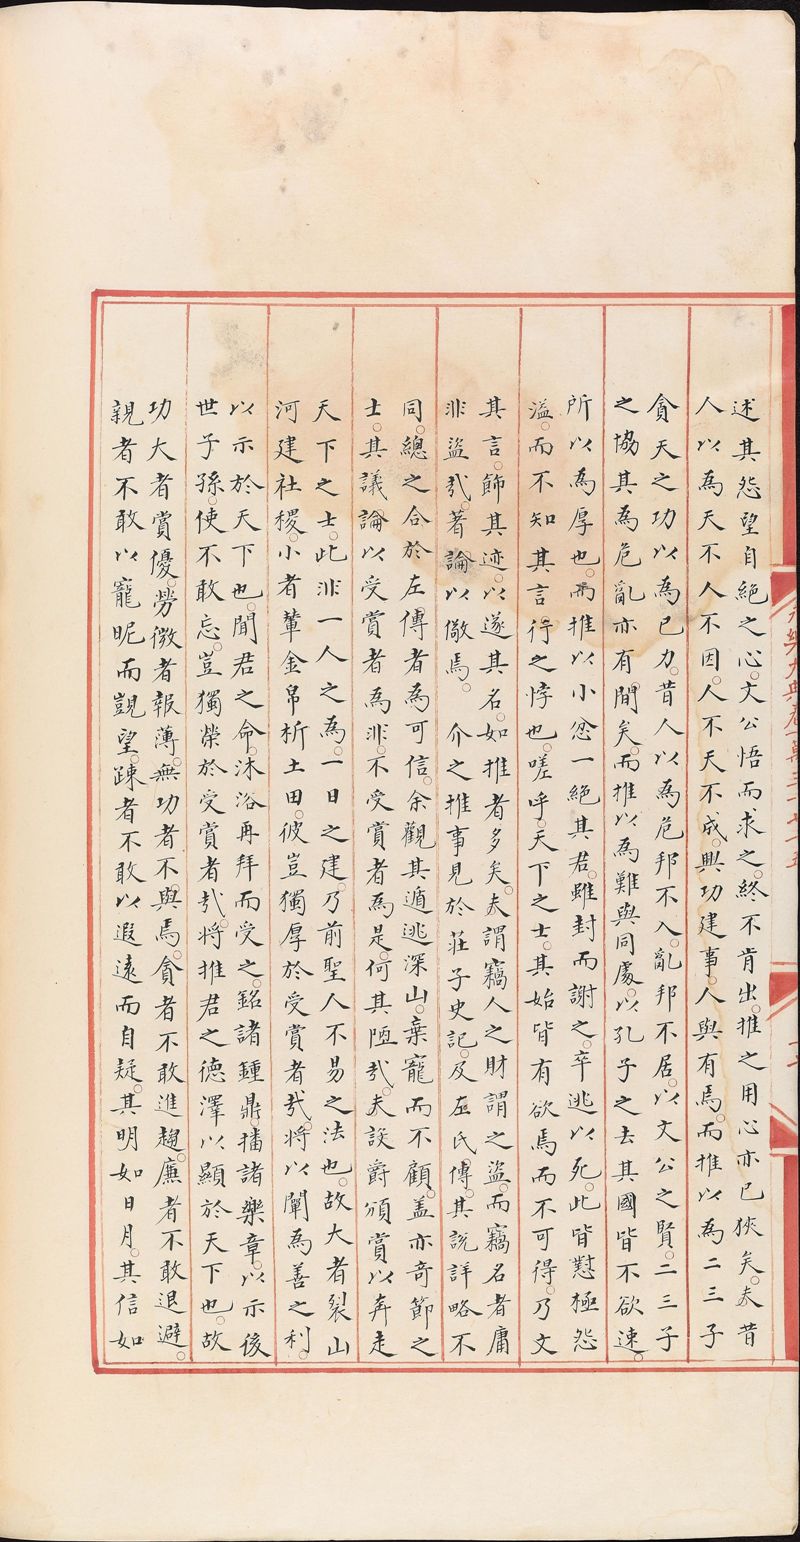 述其怨望自絕之心。文公悟而求之。終不肯出。推之用心亦已狹矣。夫昔
人以為天不人不因。人不天不成。興功建事。人與有焉。而推以為二三子
貪天之功以為已力。昔人以為危邦不入。亂邦不居。以文公之賢。二三子
之協其為危亂亦有間矣。而推以為難與同處。以孔子之去其國皆不欲速。
所以為厚也。而推以小忿一絕其君。雖封而謝之。卒逃以死。此皆懟極怨
溢。而不知其言得之悖也。嗟呼。天下之士。其始皆有欲焉而不可得。乃文
其言。飾其迹。以遂其名。如推者多矣。夫謂竊人之財謂之盜。而竊名者庸
非盜㢤。著論以儆焉。 介之推事見於莊子史記。及左氏傳。其說詳略不
同。總之合於左傳者為可信。余觀其遁逃深山。棄寵而不顧。盖亦奇節之
士。其議論以受賞者為非。不受賞者為是。何其陋㢤。夫設爵頒賞以奔走
天下之士。此非一人之為。一日之建。乃前聖人不易之法也。故大者裂山
河建社稷。小者輦金帛析土田。彼豈獨厚於受賞者㢤。將以闡為善之利。
以示於天下也。聞君之命。沐浴再拜而受之。銘諸鍾鼎。播諸樂章。以示後
世子孫。使不敢忘。豈獨榮於受賞者㢤。將推君之德澤以顯於天下也。故
功大者賞優。勞微者報薄。無功者不與焉。貪者不敢進趨。廉者不敢退避。
親者不敢以寵昵而覬望。踈者不敢以遐遠而自疑。其明如日月。其信如